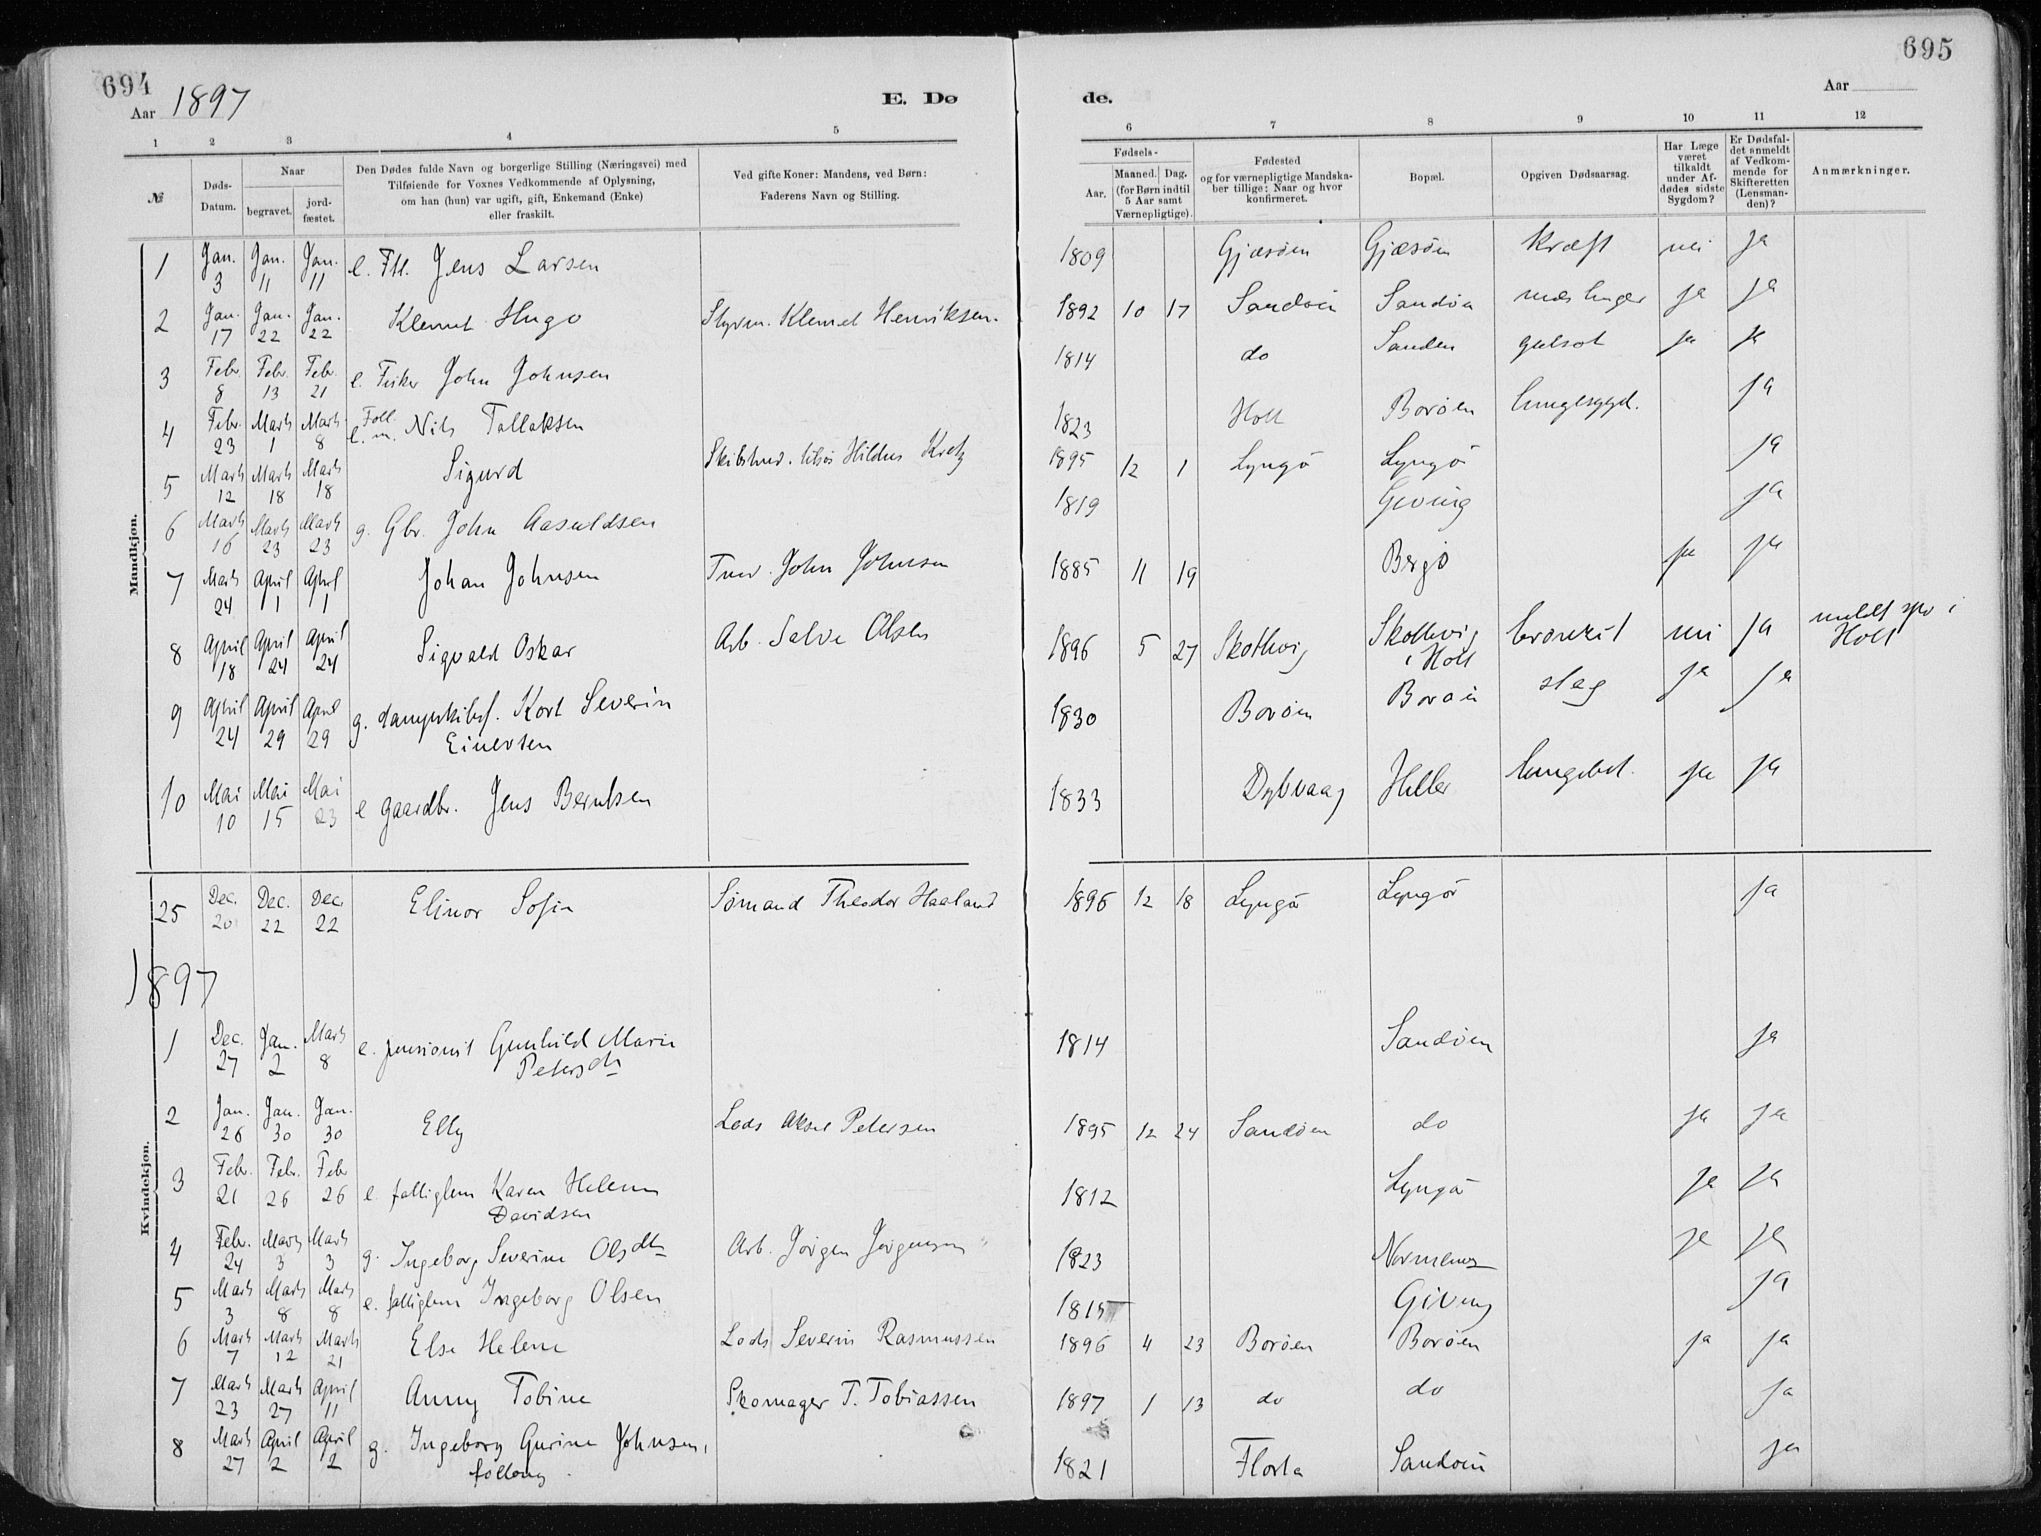 694
Aar 1897
E. Dø
de.
Aar
695
1 2 3 4 5 6 7 8 9 10 11 12
№
Døds-Datum.
Naar
begravet.
jord-fæstet.
Den Dødes fulde Navn og borgerlige Stilling (Næringsvei) med
Tilføiende for Voxnes Vedkommende af Oplysning,
om han (hun) var ugift, gift, Enkemand (Enke)
eller fraskilt.
Ved gifte Koner: Mandens, ved Børn:
Faderens Navn og Stilling.
Fødsels-
Aar.
Maaned. Dag.
(for Børn indtil
5 Aar samt
Værnepligtige).
Fødested
og for værnepligtige Mandska-
ber tillige: Naar og hvor
konfirmeret.
Bopæl.
Opgiven Dødsaarsag.
Har Læge
været
tilkaldt
under Af-
dødes sidste
Sygdom?
Er Dødsfal-
det anmeldt
af Vedkom-
mende for
Skifteretten
(Lensman-
den)?
Anmærkninger.
Mandkjøn.
1 Jan. 3 Jan. 11 Jan. 11 e. Fll. Jens Larsen 1809 Gjæsøen Gjæsøen Kræft nei ja
2 Jan. 17 Jan. 22 Jan. 22 Klemet Hugo Styrm. Klemet Henriksen. 1892 10 17 Sandøen Sandøen meslinger ja ja
3 Febr. 8 Febr. 13 Febr. 21 e. Fisker John Johnsen 1814 do Sandøen gulsot ja ja
4 Febr. 23 Marts 1 Marts 8 Foll. e. m. Nils Tallaksen 1823 Holt Borøen lungesygd. ja
5 Marts 12 Marts 18 Marts 18 Sigurd Hildus 1895 12 1 Lyngø Lyngø ja
6 Marts 16 Marts 23 Marts 23 g. Gbr. John Aasuldsen 1819 Geving ja
7 Marts 24 April 1 April 1 Johan Johnsen John Johnsen 1885 11 19 Bergø ja ja
8 April 18 April 24 April 24 Sigvald Oskar Arb. Salve Olsen 1896 5 27 Skottevig Skottevig i Holt bronkit nei ja meldt i Holt
9 April 24 April 29 April 29 g. dampskibsf. Kort Severin
Einersen 1830 Borøen Borøen slag ja ja
10 Mai 10 Mai 15 Mai 23 e gaardbr. Jens Berntsen 1833 Dybvaag Hiller lungebet. ja ja
Kvindekjøn.
25 Dec. 20 Dec. 22 Dec. 22 Elinor Sofie Sømand Theodor Haaland 1896 12 18 Lyngør Lyngør ja
1897
1 Dec. 27 Jan. 2 Marts 8 e. pensionist Gunhild Marie
Petersdtr 1814 Sandøen ja
2 Jan. 26 Jan. 30 Jan. 30 Elly Lods Aksel Petersen 1895 12 24 Sandøen do ja ja
3 Febr. 21 Febr. 26 Febr 26 e. fattiglem Karen Helene
Davidsen 1812 Lyngø ja ja
4 Febr. 24 Marts 3 Marts 3 g. Ingeborg Severine Olsdtr Arb. Jørgen Jørgensen 1823 ja ja
5 Marts 3 Marts 8 Marts 8 e. fattiglem Ingeborg Olsen 1815 Giving ja
6 Marts 7 Marts 12 Marts 21 Else Helene Lods Severin Rasmussen 1896 4 23 Borøen Borøen ja ja
7 Marts 23 Marts 27 April 11 Anny Tobine Skomager T. Tobiassen 1897 1 13 do do ja
8 Marts 27 April 2 April 2 g. Ingeborg Gurine Johnsen, 1821 Flosta Sandøen ja